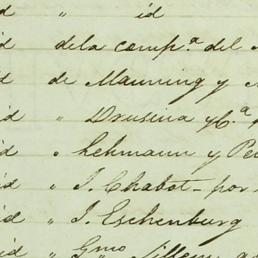 id " id
id dela comp.ª del
id de Manning y
id " Drusina y C.ª
id " Lehmann y
id " J. Chabot - por
id " J. Eschenburg
id " Gmo Sillem